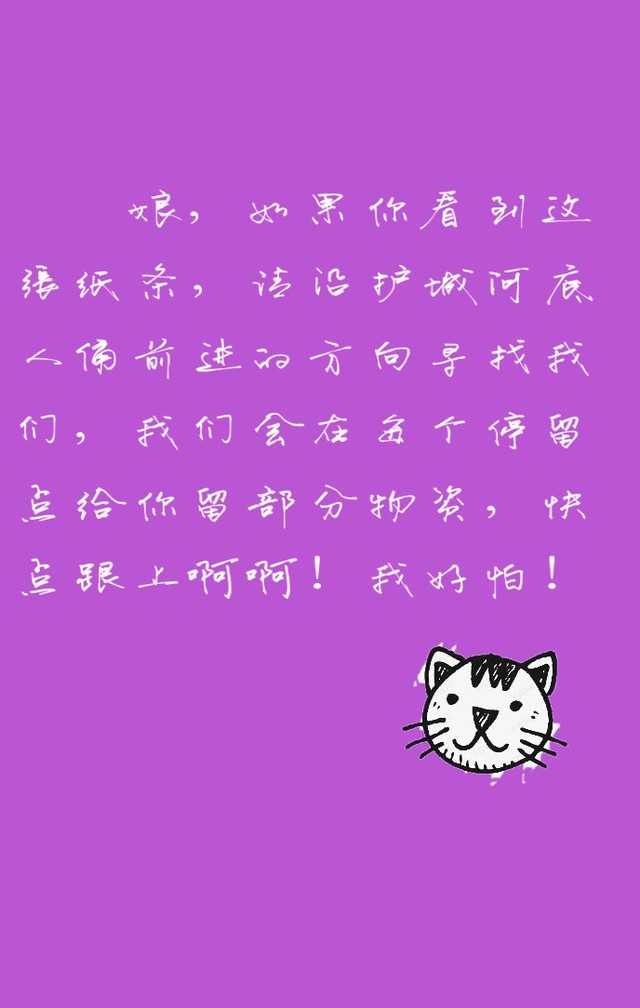 娘，如果你看到这
張纸条，请沿护城河底
人俑前进的方向寻找我
们，我们会在每个停留
点给你留部分物资，快
点跟上啊啊！我好怕！